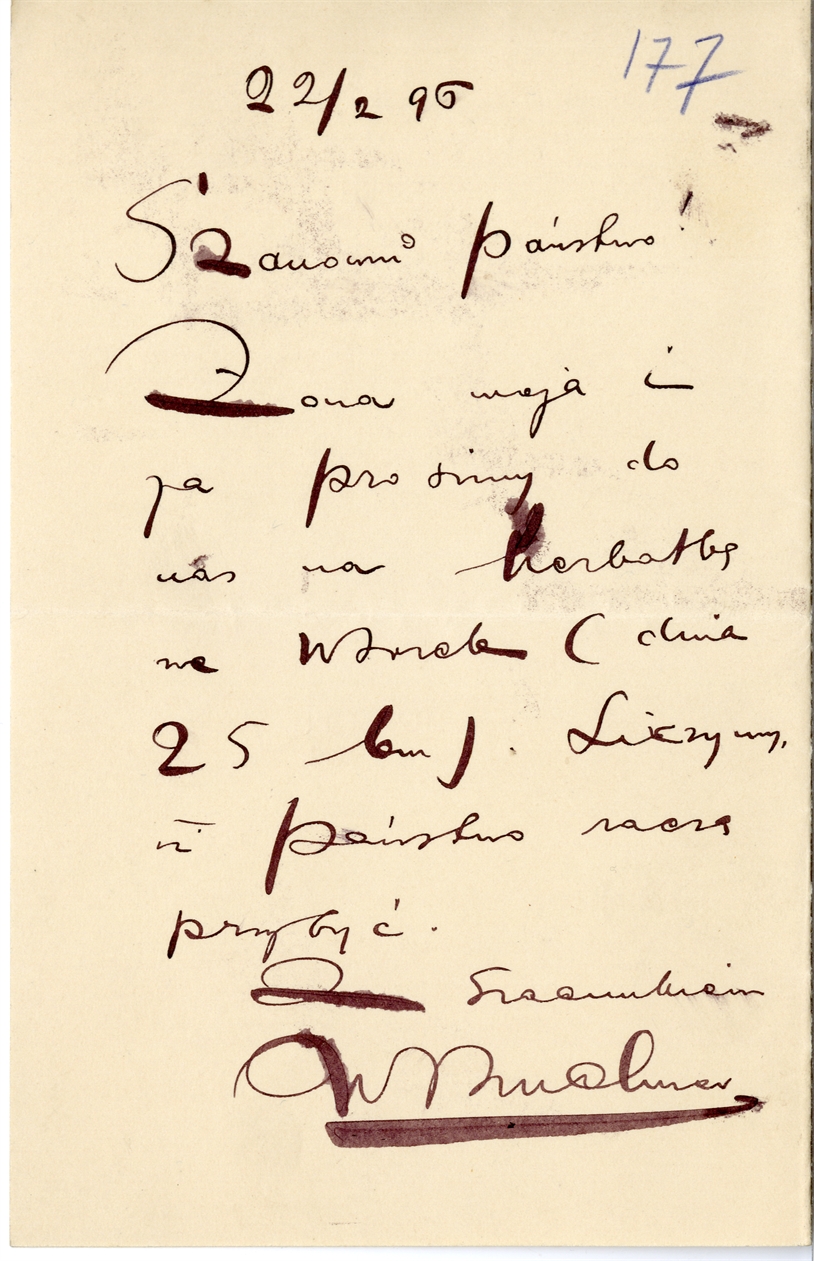 177
22/2 96
Szanowni państwo!
Żona moja i
ja prosimy do
nas na herbatkę
we Wtorek (dnia
25 bm). Liczymy,
iż państwo raczą
przybyć.
Z Szacunkiem